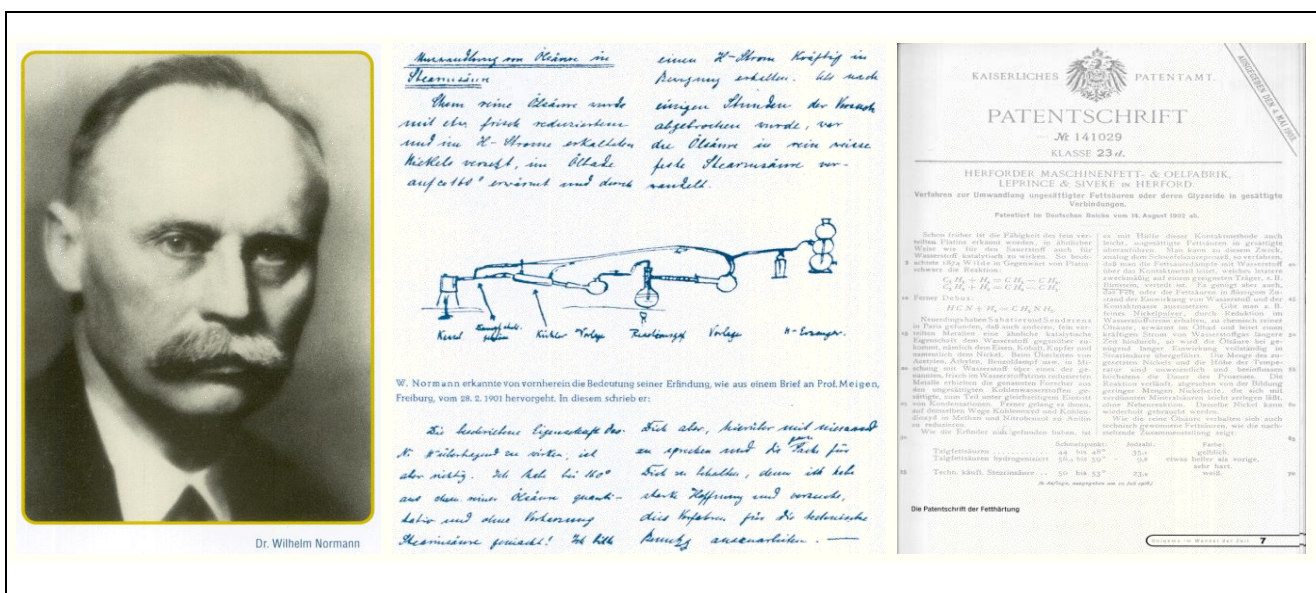 Dr. Wilhelm Normann
Umwandlung von Ölsäure in
Stearinsäure
Chem reine Ölsäure wurde
mit etw. frisch reduziertem
und im H-Strome erkalteten
Nickels versetzt, im Ölbade
auf ca 160° erwärmt und durch
einen H-Strom kräftig in
Bewegung erhalten. Als nach
einigen Stunden der Versuch
abgebrochen wurde, war
die Ölsäure in rein weisse
feste Stearinsäure ver-
wandelt.
Kessel Kühler Vorlage Vorlage H-Erzeuger.
W. Normann erkannte von vornherein die Bedeutung seiner Erfindung, wie aus einem Brief an Prof. Meigen,
Freiburg, vom 28. 2. 1901 hervorgeht. In diesem schrieb er:
Die beschriebene Eigenschaft des
Ni H übertragend zu wirken, ist
aber richtig. Ich habe bei 160°
aus chem reiner Ölsäure quanti-
tativ und ohne Verharzung
Stearinsäure gemacht! Ich bitte
Dich aber, hierüber mit niemand
zu sprechen und die Sache für
Dich zu behalten, denn ich habe
starke Hoffnung und versuche,
dies Verfahren für die technische
auszuarbeiten. —
KAISERLICHES PATENTAMT.
AUSGEGEBEN DEN 4. MAI 1903.
PATENTSCHRIFT
№ 141029
KLASSE 23 d.
HERFORDER MASCHINENFETT- & OELFABRIK,
LEPRINCE & SIVEKE IN HERFORD.
Verfahren zur Umwandlung ungesättigter Fettsäuren oder deren Glyzeride in gesättigte
Verbindungen.
Patentiert im Deutschen Reiche vom 14. August 1902 ab.
Schon früher ist die Fähigkeit des fein ver-
teilten Platins erkannt worden, in ähnlicher
Weise wie für den Sauerstoff auch für
Wasserstoff katalytisch zu wirken. So beob-
achtete 1874 Wilde in Gegenwart von Platin-
schwarz die Reaktion:
Ferner Debus:
H C N + H₄ = C H₃ N H₂.
Neuerdings haben Sabatier und Senderens
in Paris gefunden, daß auch anderen, fein ver-
teilten Metallen eine ähnliche katalytische
Eigenschaft dem Wasserstoff gegenüber zu-
kommt, nämlich dem Eisen, Kobalt, Kupfer und
namentlich dem Nickel. Beim Überleiten von
Azetylen, Äthylen, Benzoldampf usw. in Mi-
schung mit Wasserstoff über eines der ge-
nannten, frisch im Wasserstoffstrom reduzierten
Metalle erhielten die genannten Forscher aus
den ungesättigten Kohlenwasserstoffen ge-
sättigte, zum Teil unter gleichzeitigem Eintritt
von Kondensationen. Ferner gelang es ihnen,
auf demselben Wege Kohlenoxyd und Kohlen-
dioxyd in Methan und Nitrobenzol zu Anilin
zu reduzieren.
Wie die Erfinder nun gefunden haben, ist
es mit Hülfe dieser Kontaktmethode auch
leicht, ungesättigte Fettsäuren in gesättigte
überzuführen. Man kann zu diesem Zweck,
analog dem Schwefelsäureprozeß, so verfahren,
daß man die Fettsäuredämpfe mit Wasserstoff
über das Kontaktmetall leitet, welches letztere
zweckmäßig auf einem geeigneten Träger, z. B.
Bimstein, verteilt ist. Es genügt aber auch,
das Fett oder die Fettsäuren in flüssigem Zu-
stand der Einwirkung von Wasserstoff und der
Kontaktmasse auszusetzen. Gibt man z. B.
feines Nickelpulver, durch Reduktion im
Wasserstoffstrom erhalten, zu chemisch reiner
Ölsäure, erwärmt im Ölbad und leitet einen
kräftigen Strom von Wasserstoffgas längere
Zeit hindurch, so wird die Ölsäure bei ge-
nügend langer Einwirkung vollständig in
Stearinsäure übergeführt. Die Menge des zu-
gesetzten Nickels und die Höhe der Tempe-
ratur sind unwesentlich und beeinflussen
höchstens die Dauer des Prozesses. Die
Reaktion verläuft, abgesehen von der Bildung
geringer Mengen Nickelseife, die sich mit
verdünnten Mineralsäuren leicht zerlegen läßt,
ohne Nebenreaktion. Dasselbe Nickel kann
wiederholt gebraucht werden.
Wie die reine Ölsäure verhalten sich auch
technisch gewonnene Fettsäuren, wie die nach-
stehende Zusammenstellung zeigt:
Schmelzpunkt: Jodzahl: Farbe:
Talgfettsäuren 44 bis 48° 35,1 gelblich.
Talgfettsäuren hydrogenisiert etwas heller als vorige,
sehr hart.
Techn. käufl. Stearinsäure 50 bis 53° weiß.
Die Patentschrift der Fetthärtung
7